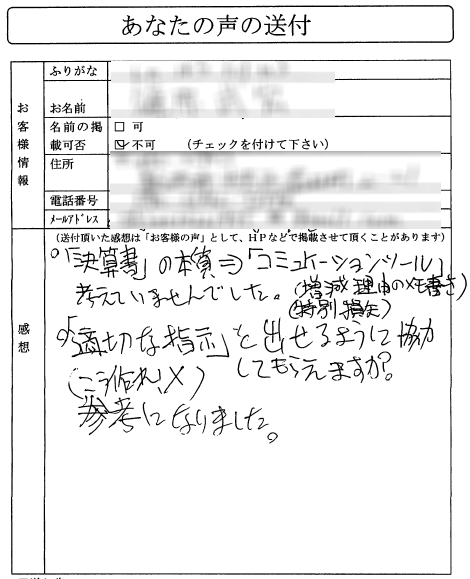 あなたの声の送付
お客様情報
ふりがな
お名前
名前の掲載可否
□ 可
☑ 不可 (チェックを付けて下さい)
住所
電話番号
メールアドレス
感想
(送付頂いた感想は「お客様の声」として、HPなどで掲載させて頂くことがあります)
○「決算書」の本質⇒「コミュケーションツール」
考えていませんでした。(増減理由のメモ書き)
(特別損失)
○「適切な指示」を出せるように協力
(こう作れ、×) してもらえますか?
参考になりました。